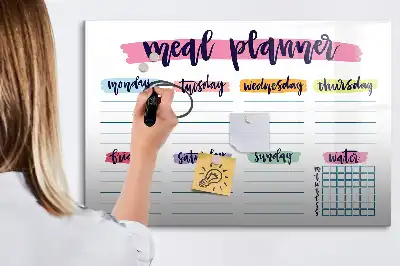 meal planner
monday tuesday wednesday thursday
sunday water